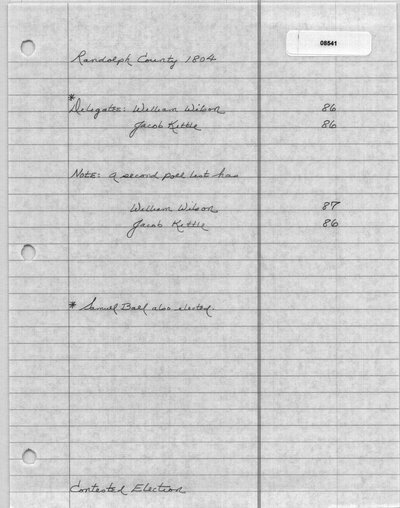 08541
Randolph County 1804
*
Delegates: William Wilson 86
Jacob Kittle 86
Note: A second poll list has
William Wilson 87
Jacob Kittle 86
* Samuel Ball also elected.
Contested Election